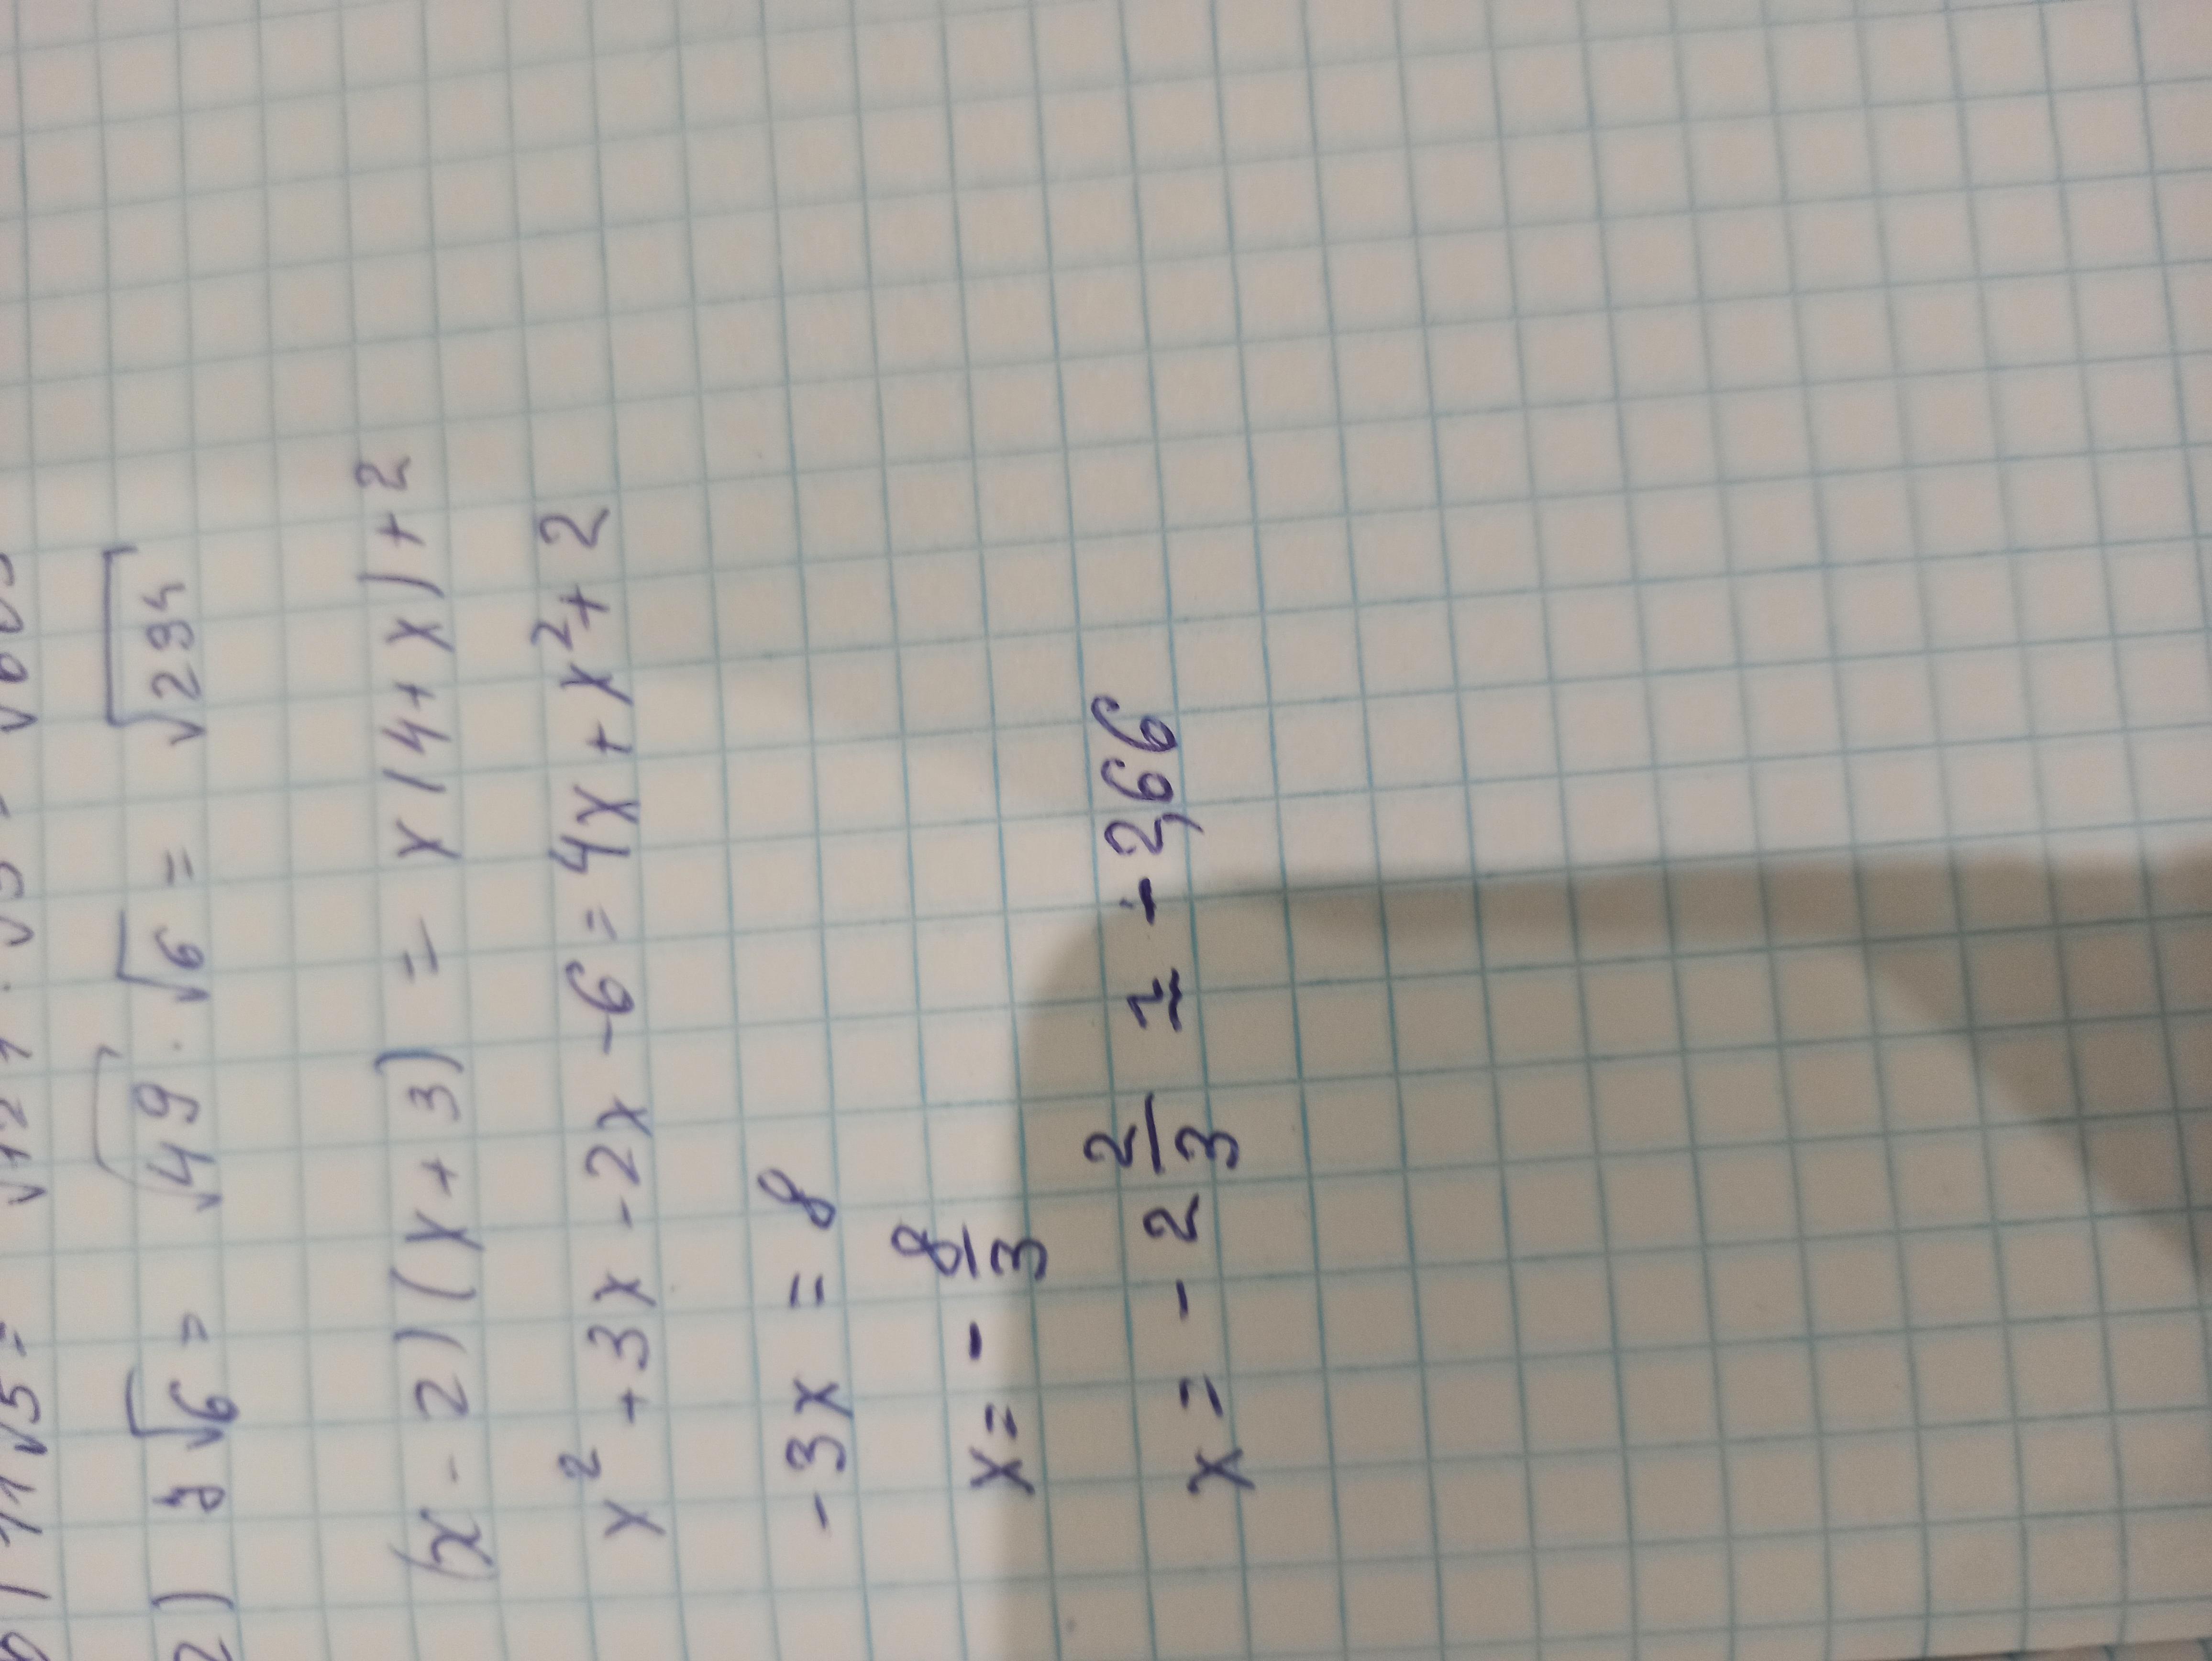 11√5 = √121 · √5 = √605
2) 7√6 = √49 · √6 = √294
(x - 2)(x + 3) = x(4 + x) + 2
x² + 3x - 2x - 6 = 4x + x² + 2
-3x = 8
x = - 8/3
x = - 2 2/3 ≈ -2,66